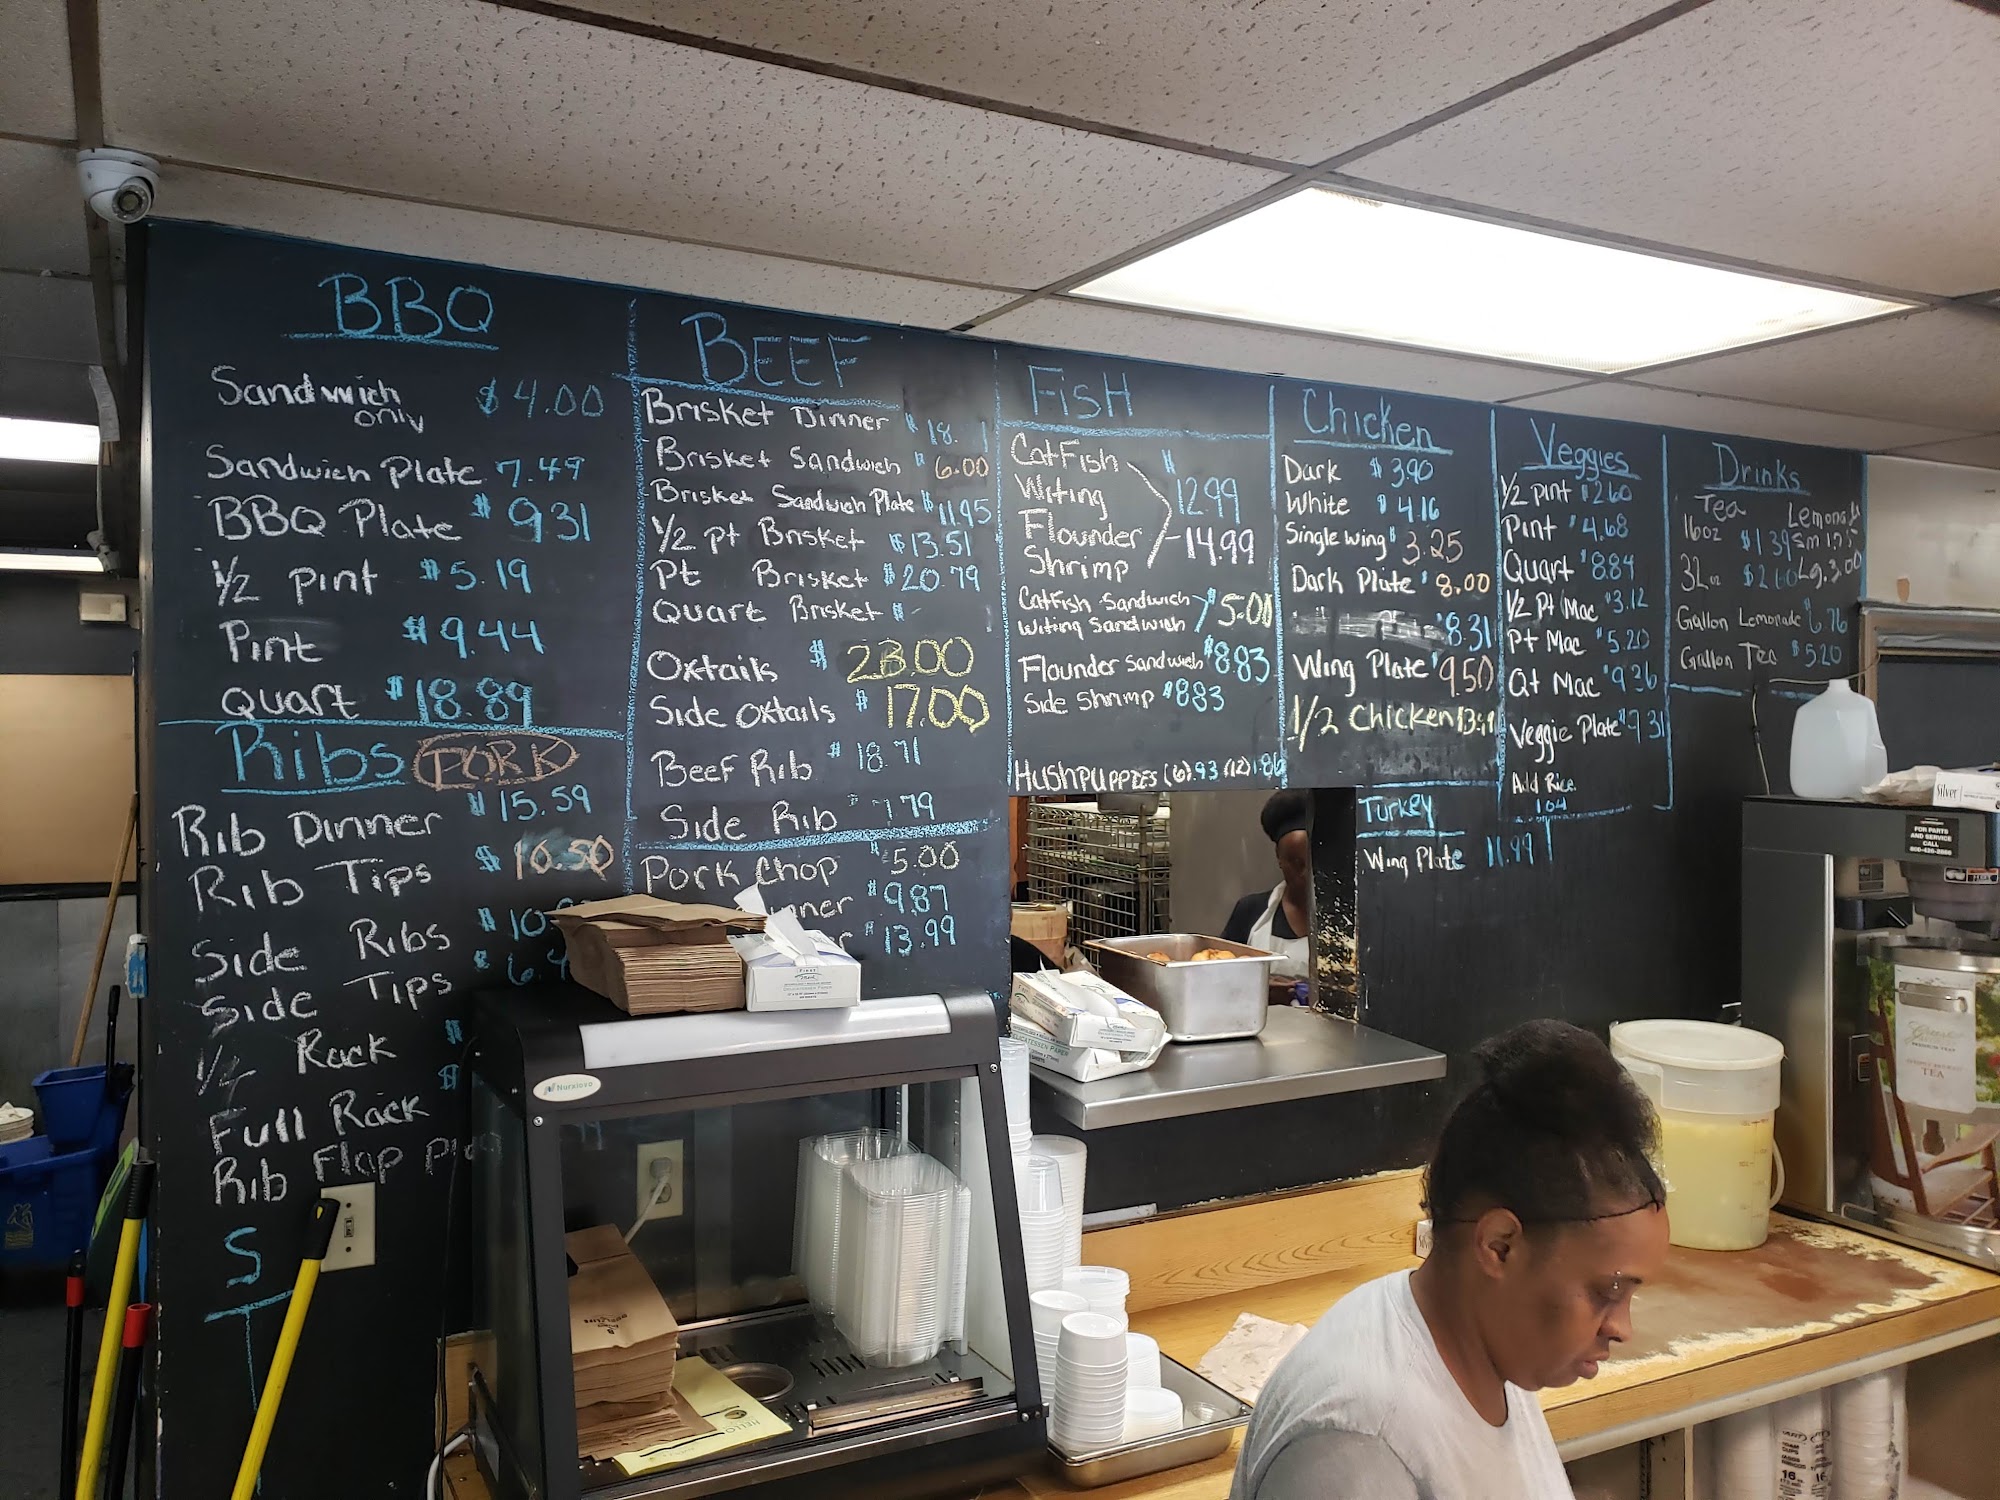 BBQ
Sandwich only $4.00
Sandwich Plate 7.49
BBQ Plate $9.31
1/2 pint $5.19
Pint $9.44
Quart $18.89
Ribs PORK
Rib Dinner $15.59
Rib Tips $10.50
Side Ribs $10.
Side Tips $6.4
1/2 Rack $
Full Rack $
Rib Flap
S
BEEF
Brisket Dinner $18.
Brisket Sandwich $6.00
Brisket Sandwich Plate $11.95
1/2 pt Brisket $13.51
Pt Brisket $20.79
Quart Brisket $
Oxtails $23.00
Side Oxtails $17.00
Beef Rib $18.71
Side Rib $7.79
Pork Chop $5.00
nner $9.87
$13.99
FisH
CatFish $12.99
Witing
Flounder -14.99
Shrimp
CatFish Sandwich $5.00
Witing Sandwich
Flounder Sandwich $8.83
Side Shrimp $8.83
Hushpuppies (6).93 (12)1.86
Chicken
Dark $3.90
White $4.16
Single wing $3.25
Dark Plate $8.00
$8.31
Wing Plate $9.50
1/2 Chicken
Turkey
Wing Plate 11.99
Veggies
1/2 pint $2.60
Pint $4.68
Quart $8.84
1/2 Pt Mac $3.12
Pt Mac $5.20
Qt Mac $9.36
Veggie Plate $9.31
Add Rice
1.04
Drinks
Tea
16oz $1.39
32oz $2.60 Lg. 3.00
Gallon Lemonade $6.76
Gallon Tea $5.20
FOR PARTS
AND SERVICE
CALL
TEA
Nurxiovo
DELICATESSEN PAPER
Silver
16